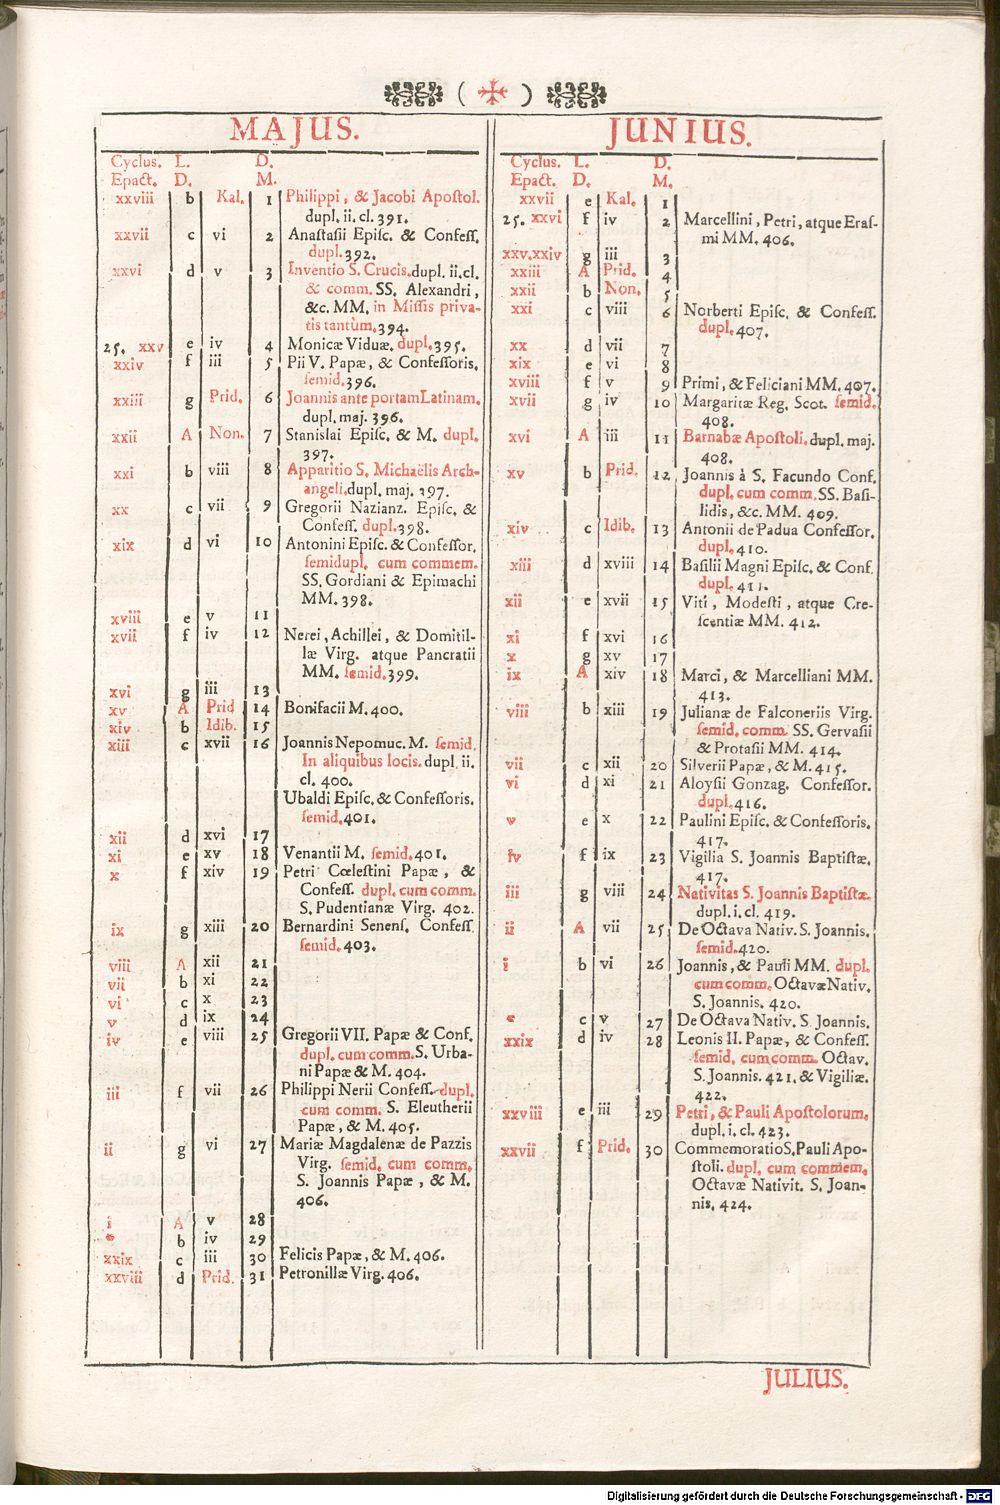 ( )
MAJUS.
Cyclus. L. D.
Epact. D. M.
xxviii b Kal. 1 Philippi, & Jacobi Apoſtol.
dupl. ii. cl. 391.
xxvii c vi 2 Anaſtaſii Epiſc. & Confeſſ.
dupl. 392.
xxvi d v 3 Inventio S. Crucis. dupl. ii. cl.
& comm. SS. Alexandri,
&c. MM. in Miſſis priva-
tis tantùm. 394.
25. xxv e iv 4 Monicæ Viduæ. dupl. 395.
xxiv f iii 5 Pii V. Papæ, & Confeſſoris.
ſemid. 396.
xxiii g Prid. 6 Joannis ante portam Latinam.
dupl. maj. 396.
xxii A Non. 7 Stanislai Epiſc. & M. dupl.
397.
xxi b viii 8 Apparitio S. Michaëlis Arch-
angeli. dupl. maj. 397.
xx c vii 9 Gregorii Nazianz. Epiſc. &
Confeſſ. dupl. 398.
xix d vi 10 Antonini Epiſc. & Confeſſor.
ſemidupl. cum commem.
SS. Gordiani & Epimachi
MM. 398.
xviii e v 11
xvii f iv 12 Nerei, Achillei, & Domitil-
læ Virg. atque Pancratii
MM. ſemid. 399.
xvi g iii 13
xv A Prid 14 Bonifacii M. 400.
xiv b Idib. 15
xiii c xvii 16 Joannis Nepomuc. M. ſemid.
In aliquibus locis. dupl. ii.
cl. 400.
Ubaldi Epiſc. & Confeſſoris.
ſemid. 401.
xii d xvi 17
xi e xv 18 Venantii M. ſemid. 401.
x f xiv 19 Petri Cœleſtini Papæ, &
Confeſſ. dupl. cum comm.
S. Pudentianæ Virg. 402.
ix g xiii 20 Bernardini Senenſ. Confeſſ.
ſemid. 403.
viii A xii 21
vii b xi 22
vi c x 23
v d ix 24
iv e viii 25 Gregorii VII. Papæ & Conf.
dupl. cum comm. S. Urba-
ni Papæ & M. 404.
iii f vii 26 Philippi Nerii Confeſſ. dupl.
cum comm. S. Eleutherii
Papæ, & M. 405.
ii g vi 27 Mariæ Magdalenæ de Pazzis
Virg. ſemid. cum comm.
S. Joannis Papæ, & M.
406.
i A v 28
* b iv 29
xxix c iii 30 Felicis Papæ, & M. 406.
xxviii d Prid. 31 Petronillæ Virg. 406.
JUNIUS.
Cyclus. L. D.
Epact. D. M.
xxvii e Kal. 1
25. xxvi f iv 2 Marcellini, Petri, atque Eraſ-
mi MM. 406.
xxv. xxiv g iii 3
xxiii A Prid. 4
xxii b Non. 5
xxi c viii 6 Norberti Epiſc. & Confeſſ.
dupl. 407.
xx d vii 7
xix e vi 8
xviii f v 9 Primi, & Feliciani MM. 407.
xvii g iv 10 Margaritæ Reg. Scot. ſemid.
408.
xvi A iii 11 Barnabæ Apoſtoli. dupl. maj.
408.
xv b Prid. 12 Joannis à S. Facundo Conf.
dupl. cum comm. SS. Baſi-
lidis, &c. MM. 409.
xiv c Idib. 13 Antonii de Padua Confeſſor.
dupl. 410.
xiii d xviii 14 Baſilii Magni Epiſc. & Conf.
dupl. 411.
xii e xvii 15 Viti, Modeſti, atque Cre-
ſcentiæ MM. 412.
xi f xvi 16
x g xv 17
ix A xiv 18 Marci, & Marcelliani MM.
413.
viii b xiii 19 Julianæ de Falconeriis Virg.
ſemid. comm. SS. Gervaſii
& Protaſii MM. 414.
vii c xii 20 Silverii Papæ, & M. 415.
vi d xi 21 Aloyſii Gonzag. Confeſſor.
dupl. 416.
v e x 22 Paulini Epiſc. & Confeſſoris.
417.
iv f ix 23 Vigilia S. Joannis Baptiſtæ.
417.
iii g viii 24 Nativitas S. Joannis Baptiſtæ.
dupl. i. cl. 419.
ii A vii 25 De Octava Nativ. S. Joannis.
ſemid. 420.
i b vi 26 Joannis, & Pauli MM. dupl.
cum comm. Octavæ Nativ.
S. Joannis. 420.
* c v 27 De Octava Nativ. S. Joannis.
xxix d iv 28 Leonis II. Papæ, & Confeſſ.
ſemid. cum comm. Octav.
S. Joannis. 421. & Vigiliæ.
422.
xxviii e iii 29 Petri, & Pauli Apoſtolorum.
dupl. i. cl. 423.
xxvii f Prid. 30 Commemoratio S. Pauli Apo-
ſtoli. dupl. cum commem.
Octavæ Nativit. S. Joan-
nis. 424.
JULIUS.
Digitalisierung gefördert durch die Deutsche Forschungsgemeinschaft - DFG